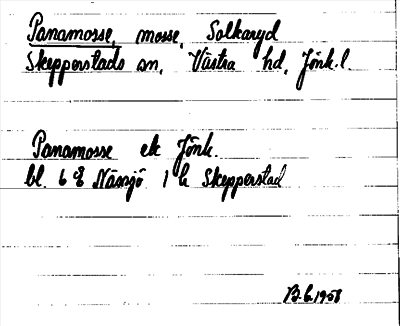 Panamosse, mosse, Solkaryd
Skepperstads sn, Västra hd, Jönk.l.
Panamosse ek Jönk.
bl. 6 E Nässjö 1 h Skepperstad
B.G. 1958